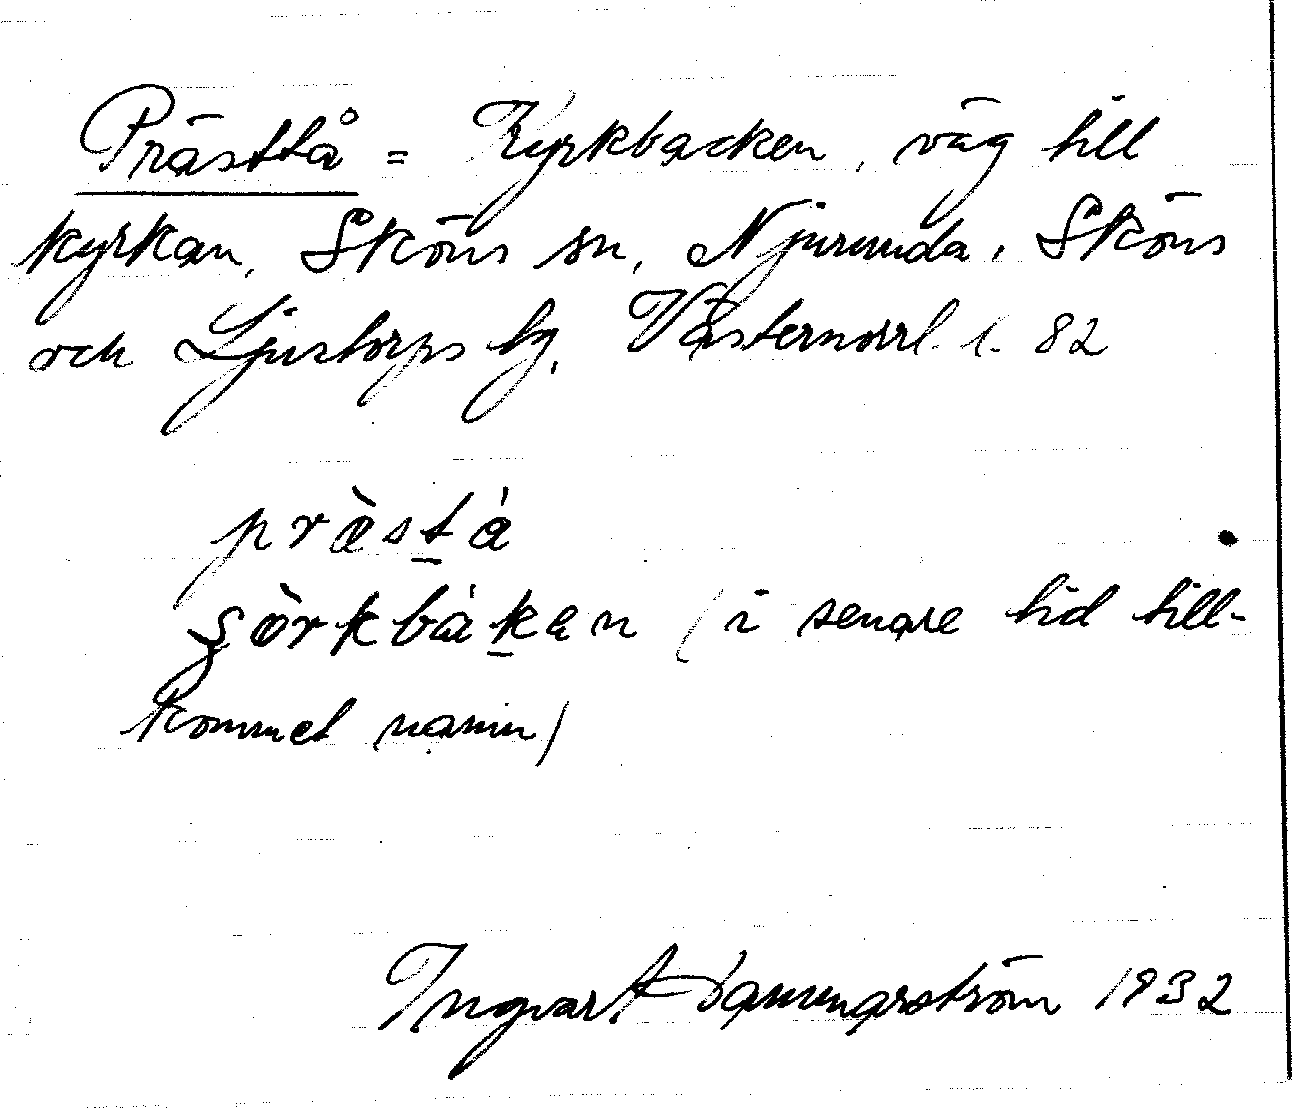 Prästtå = Kyrkbacken, väg till
kyrkan, Sköns sn, Njurunda, Sköns
och Ljustorps tg, Västernorrl. l. 82
prӕ̀stá
şö̀rkbákan (i senare tid till-
kommet namn)
Ingvar Hammarström 1932